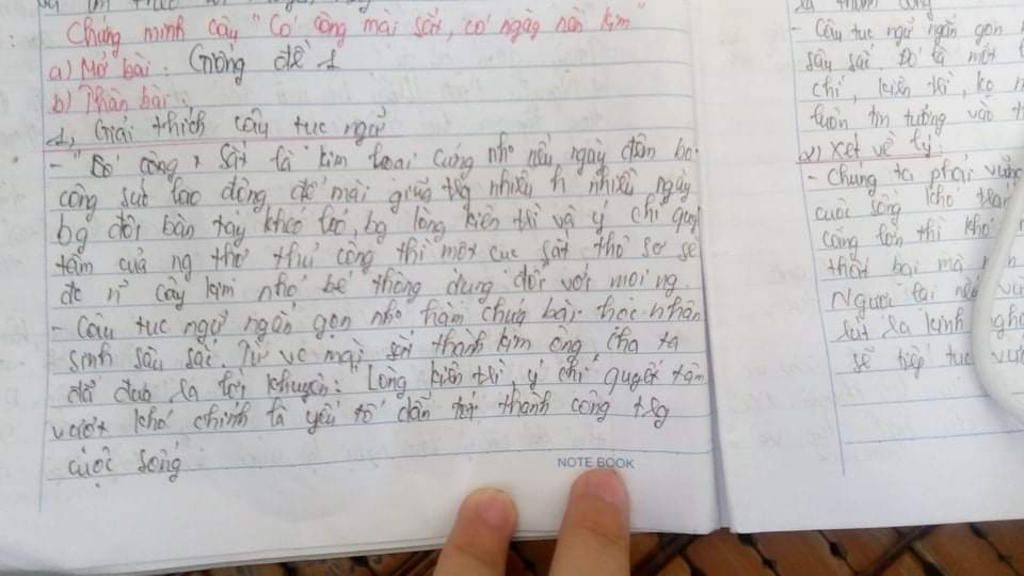 Chứng minh câu "Có công mài sắt, có ngày nên kim"
a) Mở bài: Giống đề 1
b) Thân bài:
1, Giải thích câu tục ngữ
- "Có công, sắt là kim loại cứng nhg nếu ngày đêm bỏ
công sức lao động để mài giũa trg nhiều h nhiều ngày
bg đôi bàn tay khéo léo, bg lòng kiên trì và ý chí quyết
tâm của ng thợ thủ công thì một cục sắt thô sơ sẽ
cây kim nhỏ bé thông dụng đối với mọi ng.
- Câu tục ngữ ngắn gọn nhg hàm chứa bài học nhân
sinh sâu sắc. Từ vc mài sắt thành kim ông cha ta
đã đưa ra lời khuyên: "Lòng kiên trì, ý chí quyết tâm
vượt khó chính là yếu tố dẫn tới thành công trg
cuộc sống
NOTE BOOK
- Câu tục ngữ ngắn gọn
sâu sắc Đó là một
chí, kiên trì, ko
luôn tin tưởng vào
2) Xét về lý:
- Chúng ta phải
cuộc sống khó
càng lớn thì khó
thất bại mà
Người lại nếu
rút ra kinh
sẽ tiếp tục